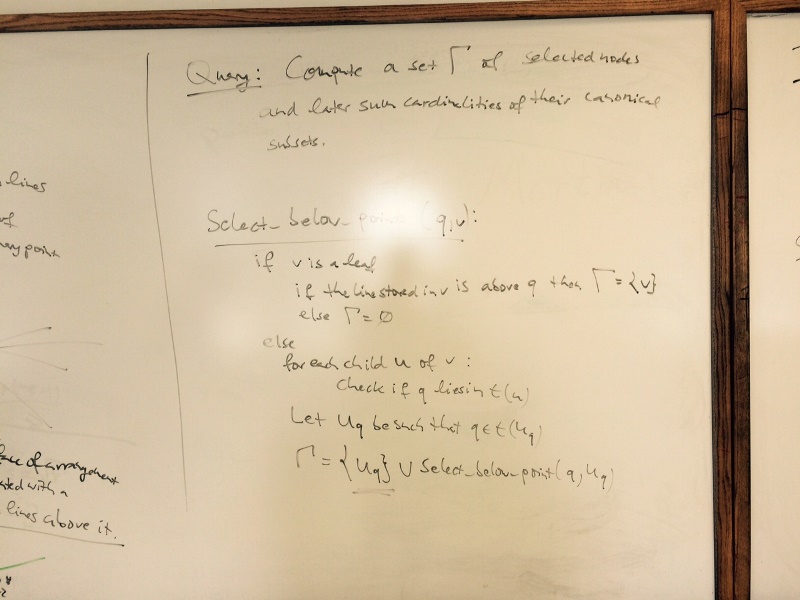 Query: Compute a set Γ of selected nodes
and later sum cardinalities of their canonical
subsets.
Select_below_point (q,v):
if v is a leaf
if the line stored in v is above q then Γ={v}
else Γ=∅
else
for each child u of v:
Check if q lies in t(u)
Let u_q be such that q∈t(u_q)
Γ={u_q} ∪ Select_below_point(q,u_q)
lines
of
query point
face of arrangement
with a
lines above it.